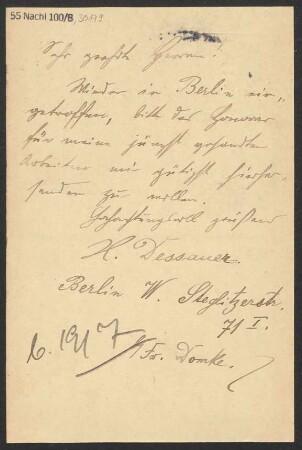 55 Nachl 100/B, 30,179
Sehr geehrte Herren!
Wieder in Berlin ein-
getroffen, bitte das Honorar
für meine jüngst gesandten
Arbeiten mir gütigst hierher
senden zu wollen.
Hochachtungsvoll
H. Dessauer.
Berlin W. Steglitzerstr.
71 I.
b. Fr. Domke.